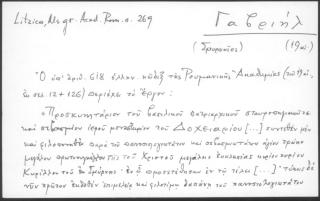 Litzica, Ms gr. Acad. Rom. σ. 269
Γαβριήλ
(Σμυρναῖος) (19αι.)
Ὁ ὑπ' ἀριθ. 618 ἑλλην. κῶδιξ τῆς Ρουμανικῆς Ἀκαδημίας (τοῦ 19 αἰ.
ἐκ σελ. 12 + 126) περιέχει τὸ ἔργον:
«Προσκυνητάριον τοῦ βασιλικοῦ πατριαρχικοῦ σταυροπηγιακοῦ τε
καὶ σεβασμίου ἱεροῦ μοναστηρίου τοῦ Δοχειαρίου [...] συντεθὲν μὲν
καὶ φιλοπονηθὲν παρὰ τοῦ πανοσιολογιωτάτου καὶ σεβασμιωτάτου ἁγίου πρώην
μεγάλου πρωτοσυγκέλλου τῆς τοῦ Χριστοῦ μεγάλης ἐκκλησίας κυρίου κυρίου
Κυρίλλου τοῦ ἐκ Σμύρνης· ἐν ᾧ προσετέθησαν ἐν τῷ τέλει [...] τύποις δὲ
νῦν πρῶτον ἐκδοθὲν ἐπιμελείᾳ καὶ φιλοτίμῳ δαπάνῃ τοῦ πανοσιολογιωτάτου